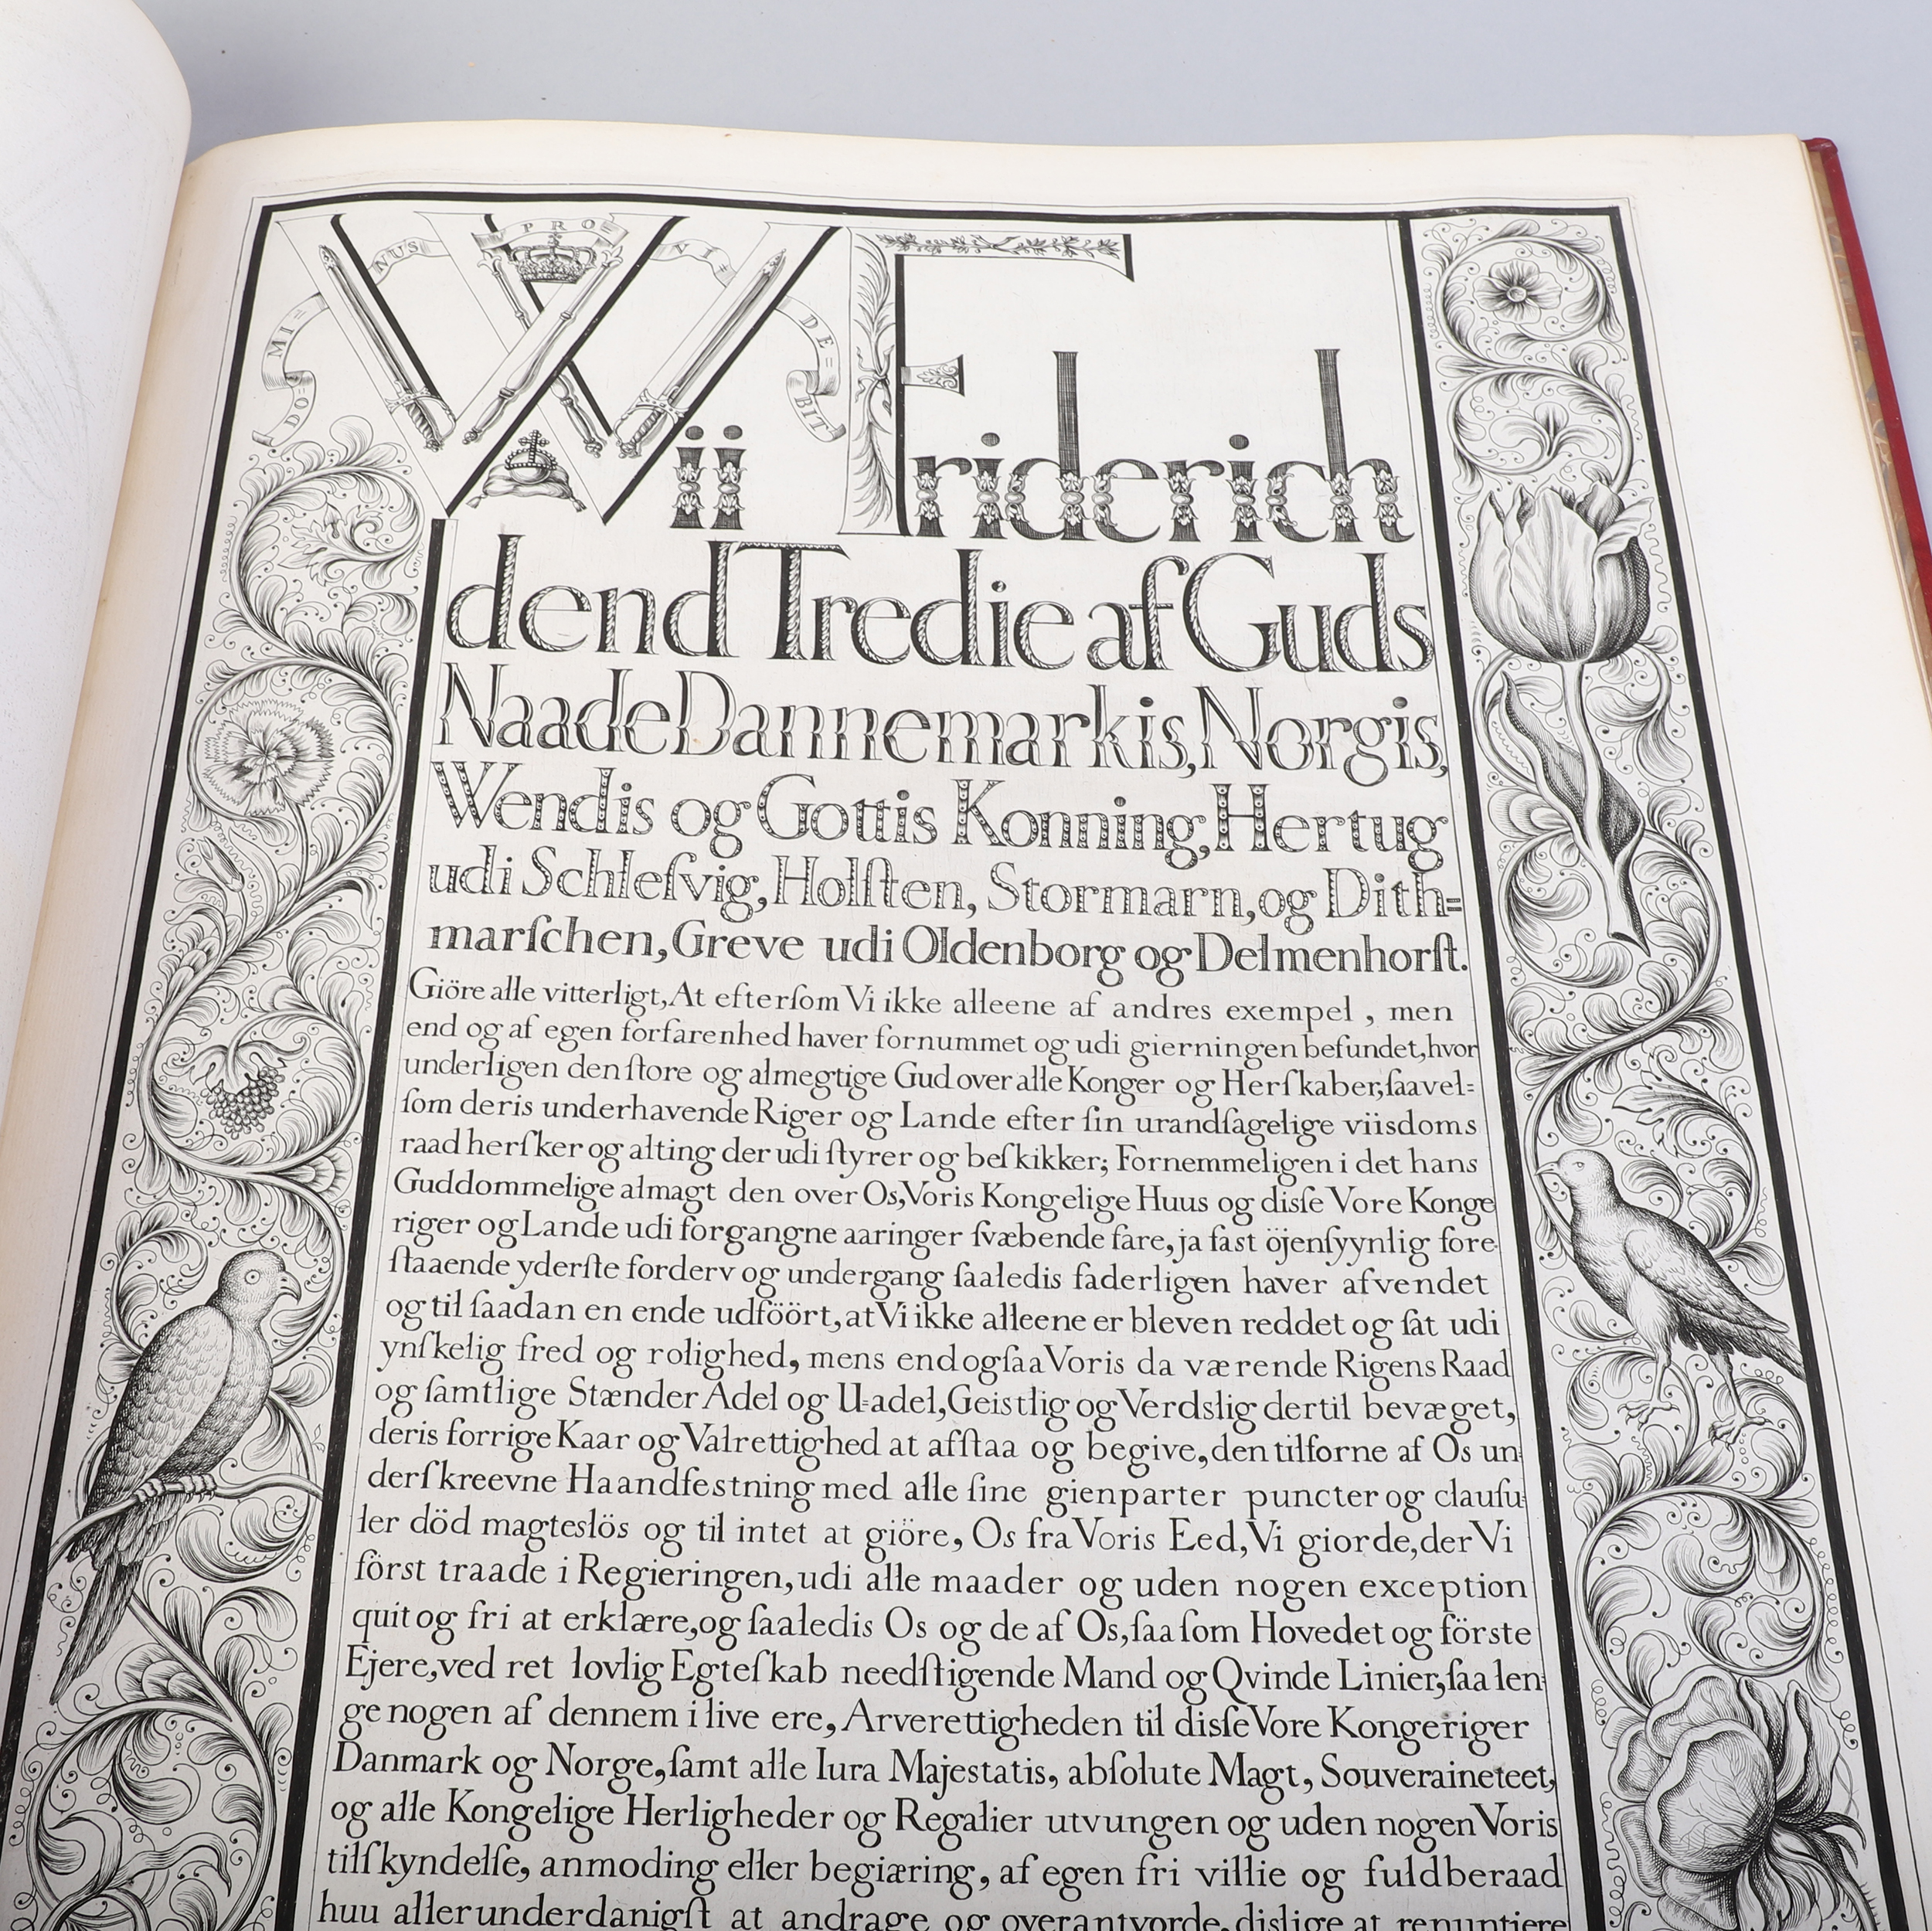 DO= MI= NUS PRO VI= DE= BIT
Wii Friderich
dend Tredie af Guds
Naade Dannemarkis, Norgis,
Wendis og Gottis Konning, Hertug
udi Schleſvig, Holſten, Stormarn, og Dith=
marſchen, Greve udi Oldenborg og Delmenhorſt.
Giöre alle vitterligt, At efterſom Vi ikke alleene af andres exempel, men
end og af egen forfarenhed haver fornummet og udi gierningen befundet, hvor
underligen den ſtore og almegtige Gud over alle Konger og Herſkaber, ſaavel=
ſom deris underhavende Riger og Lande efter ſin urandſagelige viisdoms
raad herſker og alting der udi ſtyrer og beſkikker; Fornemmeligen i det hans
Guddommelige almagt den over Os, Voris Kongelige Huus og disſe Vore Konge
riger og Lande udi forgangne aaringer ſvæbende fare, ja faſt öjenſyynlig fore-
ſtaaende yderſte forderv og undergang ſaaledis faderligen haver afvendet
og til ſaadan en ende udföört, at Vi ikke alleene er bleven reddet og ſat udi
ynſkelig fred og rolighed, mens end ogſaa Voris da værende Rigens Raad
og ſamtlige Stænder Adel og U=adel, Geistlig og Verdslig dertil bevæget,
deris forrige Kaar og Valrettighed at afſtaa og begive, den tilforne af Os un=
derſkreevne Haandfestning med alle ſine gienparter puncter og clauſu=
ler död magteslös og til intet at giöre, Os fra Voris Eed, Vi giorde, der Vi
först traade i Regieringen, udi alle maader og uden nogen exception
quit og fri at erklære, og ſaaledis Os og de af Os, ſaa ſom Hovedet og förste
Ejere, ved ret lovlig Egteſkab needſtigende Mand og Qvinde Linier, ſaa len=
ge nogen af dennem i live ere, Arverettigheden til disſe Vore Kongeriger
Danmark og Norge, ſamt alle Iura Majestatis, abſolute Magt, Souveraineteet,
og alle Kongelige Herligheder og Regalier utvungen og uden nogen Voris
tilſkyndelſe, anmoding eller begiæring, af egen fri villie og fuldberaad
huu allerunderdanigſt at andrage og overantvorde, dislige at renuntiere